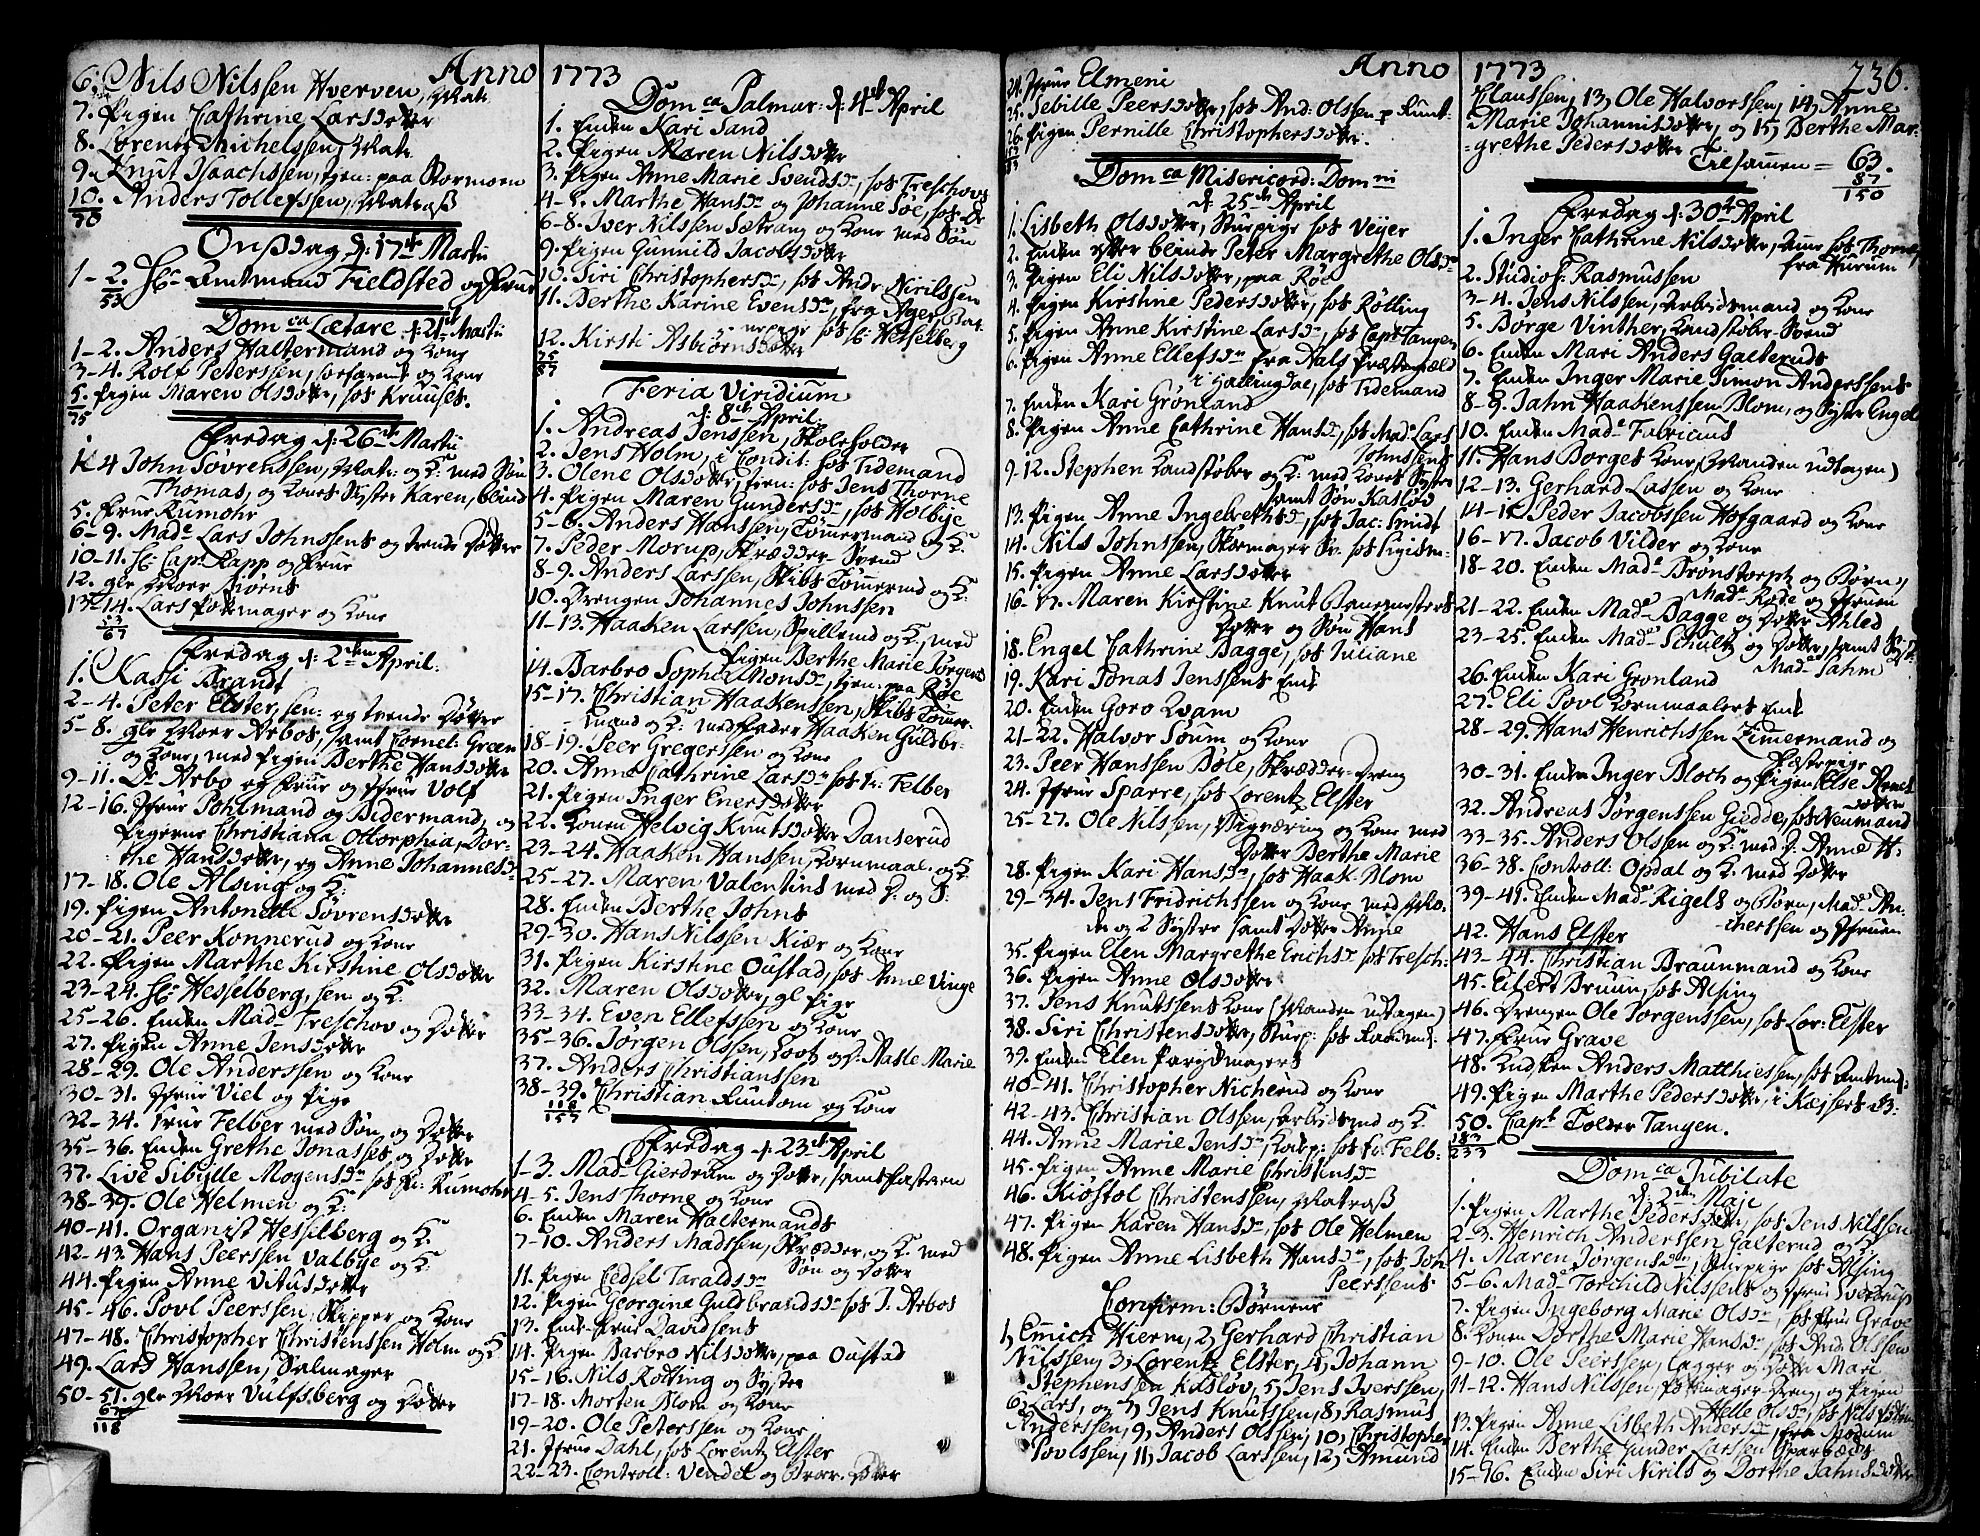 Anno 1773
6. Nils Nilssen Hverven, Mat:
7. Pigen Cathrine Larsdotter
8. Lorentz Michelssen, Mat:
9. Knut Isaachssen, tjen: paa Stormoen
10. Anders Tollefssen, Matroß
70
Onsdag d: 17de Martii
1-2. Hr Amtmand Fieldsted og Frue
53
Dom ca Lætare d: 21de Martii
1-2. Anders Haltermand og Kone
3-4. Rolf Peterssen, og Kone
5. Pigen Maren Olsdotter, hos Kruuses.
75
Fredag d: 26de Martii
1-4 John Sövrenssen, Mat: og K: med Sön
Thomas, og Kones Syster Karen, blind
5. Frue Rumohr
6-9. Made Lars Johnssens og trende Dötter
10-11. Hr Capt: Rapp og Frue
12. gle Moer Biörns
13-14. Lars Pottemager og Kone
53
67
Fredag d: 2den April:
1. Kassi Brandt
2-4. Peter Elster, sen: og tvende Dötter
5-8. gle Moer Arbos, samt Cornel: Green
og Kone, med Pigen Berthe Hansdotter
9-11. Dr Arbo og Frue og Jfrue Volf
12-16. Jfrue Pohlmand og Bidermand, og
Pigerne Christiana Odorphia, Dor-
the Hansdotter, og Anne Johannesdr
17-18. Ole Alsing og K:
19. Pigen Antonette Sövrensdotter
20-21. Peer Konnerud og Kone
22. Pigen Marthe Kirstine Olsdotter
23-24. Hr Hesselberg, sen: og K:
25-26. Enken Made Treschov og Dotter
27. Pigen Anne Jensdotter
28-29. Ole Anderssen og Kone
30-31. Jfrue Viel og Pige
32-34. Frue Felber med Sön og Dotter
35-36. Enken Grethe Jonasses og Dotter
37. Live Sibylle Mogensdr hos Fr: Rumohr
38-39. Ole Helmen og K:
40-41. Organist Hesselberg og K:
42-43. Hans Peerssen Valbye og K:
44. Pigen Anne Vitusdotter
45-46. Povl Peerssen, Skipper og Kone
47-48. Christopher Christenssen Holm og K:
49. Lars Hanssen, Salmager
50-51. gle Moer Vulfsberg og Dotter
67
118
Dom ca Palmar: d: 4de April
1. Enken Kari Sand
2. Pigen Maren Nilsdotter
3. Pigen Anne Marie Svendsdr, hos Treschovs
4-5. Marthe Hansdr og Johanne Söe, hos Dr
6-8. Iver Nilssen Sætrang og Kone med Sön
9. Pigen Gunnild Jacobsdotter
10. Siri Christophersdr, hos Andr: Nirilssen
11. Berthe Karine Evensdr, fra Ager
hos Hr Hesselberg
12. Kirsti Asbiörnsdotter
75
87
Feria Viridium
d: 8de April
1. Andreas Jenssen, Skoleholder
2. Jens Holm, i Condit: hos Tidemand
3. Olene Olsdotter, tjen: hos Jens Thorne
4. Pigen Maren Gundersdr, hos Holbye
5-6. Anders Hanssen, Tömmermand og K:
7. Peder Morup, Skrædder-Svend
8-9. Anders Larssen, Skibs Tömermd og K:
10. Drengen Johannes Johnssen
11-13. Haaken Larssen, Spillemd og K:, med
Pigen Berthe Marie Jörgensd
14. Barbro Sophie Monsdr, tjen: paa Röe
15-17. Christian Haakenssen, Skibs Tömer-
mand og K: med Fader Haaken Guldbr:
18-19. Peer Gregerssen og Kone
20. Anne Cathrine Larsdr hos Fr: Felber
21. Pigen Inger Enersdotter
22. Konen Helvig Knutsdotter Danserud
23-24. Haaken Hanssen, Kornmaal. og K:
25-27. Maren Valentins med D: og S:
28. Enken Berthe Johns
29-30. Hans Nilssen Kiær og Kone
31. Pigen Kirstine Oustad, hos Anne Vinge
32. Maren Olsdotter, gl Pige
33-34. Even Ellefssen og Kone
35-36. Jörgen Olssen, Loots og D. Aasle Marie
37. Anders Christianssen
38-39. Christian Funtom og Kone
118
157
Fredag d: 23de April
1-3. Made Gierdrum og Dotter, samt Fasteren
4-5. Jens Thorne og Kone
6. Enken Maren Haltermands
7-10. Anders Madssen, Skrædder, og K. med
Sön og Dotter
11. Pigen Cedsel Taraldsdr
12. Pigen Georgine Guldbrandsdr hos J: Arbos
13. Enke-Frue Davidsens
14. Pigen Barbro Nilsdotter, paa Oustad
15-16. Nils Rotting og Syster
17-18. Morten Blom og Kone
19-20. Ole Peterssen og Kone
21. Jfrue Dahl, hos Lorentz Elster
22-23. Controll: Vendel og Dotter
Anno 1773 236.
24. Jfrue Elmeni
25. Sebille Peersdotter, hos And: Olssen
26. Pigen Pernille Christophersdotter.
Dom ca Misericord: Domini
d: 25de April
1. Lisbeth Olsdotter, Stuepige hos Veyer
2. Enken efter blinde Peter Margrethe Olsdr
3. Pigen Eli Nilsdotter, paa Röe
4. Pigen Kirstine Pedersdotter, hos Rötting
5. Pigen Anne Kirstine Larsdr, hos Capt: Tangen
6. Pigen Anne Ellefsdr fra Hals Præstegæld
i Hallingdal, hos Tidemand
7. Enken Kari Grönland
8. Pigen Anne Cathrine Hansdr, hos Made Lars
Johnssens
9-12. Stephen Kandstöber og K: med Kones Syster
samt Sön Kaslöv
13. Pigen Anne Ingebrethsdr, hos Jac: Smidt
14. Nils Johnssen, Skoemager Sv. hos Sigism-
15. Pigen Anne Larsdotter
16-17. Maren Kirstine Knut Baneresters
Dotter og Sön Hans
18. Engel Cathrine Bagge, hos Juliane
19. Kari Jonas Jenssens Enke
20. Enken Goro Qvam
21-22. Halvor Soum og Kone
23. Peer Hanssen Böle, Skrædder-Dreng
24. Jfrue Sparre, hos Lorentz Elster
25-27. Ole Nilsen, og Kone med
Dotter Berthe Marie
28. Pigen Kari Hansdr, hos Haak. Blom
29-34. Jens Fridrichssen og Kone med
og 2 Syster samt Dotter Anne
35. Pigen Elen Margrethe Erichsdr hos Tresch:
36. Pigen Anne Olsdotter
37. Jens Knutssens Kone (Manden udtagen)
38. Siri Christensdotter, Stuep: hos Raademd:
39. Enken Elen Parykmagers
40-41. Christopher Nicherud og Kone
42-43. Christian Olssen, Arbeidsmd og K.
44. Anne Marie Jensdr, Kokp: hos Fr: Felb:
45. Pigen Anne Marie Christensdr
46. Kiöstol Christenssen, Matroß
47. Pigen Karen Hansdr, hos Ole Helmen
48. Pigen Anne Lisbeth Hansdr, hos Joh
Peerssens
Confirm: Börnene
1, Emich Hierm, 2, Gerhard Christian
Nilssen, 3, Lorentz Elster, 4, Johann
Stephenssen Kaslöv, 5, Jens Iverssen,
6, Lars, og 7, Jens Knutssen, 8, Rasmus
Anderssen, 9, Anders Olssen, 10, Christopher
Povlssen, 11, Jacob Larssen, 12, Amund
Claussen, 13, Ole Halvorssen, 14, Anne
Marie Johannisdotter, og 15, Berthe Mar-
grethe Pedersdotter
Tilsammen = 63.
87
150
Fredag d: 30te April
1. Inger Cathrine Nilsdotter, hos Thorne,
fra Hurum
2. Studios: Rasmussen
3-4. Jens Nilssen, Arbeidsmand og Kone
5. Börge Vinther, Kandstöber-Svend
6. Enken Mari Anders Galteruds
7. Enken Inger Marie Simon Anderssens
8-9. Jahn Haakenssen Blom, og Syster Engel
10. Enken Made Fabricius
11. Hans Borges Kone (Manden udtagen)
12-13. Gerhard Lassen og Kone
14-15. Peder Jacobssen Hofgaard og Kone
16-17. Jacob Vilder og Kone
18-20. Enken Made Brönstorph og Börn,
Made Rode og Jfruen
21-22. Enken Made Bagge og Dotter Ahled
23-25. Enken Made Schultz og Dotter, samt
Made Sahm
26. Enken Kari Gronland
27. Eli Povl Kornmaalers Enke
28-29. Hans Henrichssen Zimmermand og
30-31. Enken Inger Bloch og Pigen Else
32. Andreas Jörgenssen Giedde, hos Neumand
33-35. Anders Olssen og K: med D: Anne H:
36-38. Controll: Opdal og K. med Dotter
39-41. Enken Made Rigels og Börn, Made An-
cherssen og Jfruen
42. Hans Elster
43-44. Christian Braunmand og Kone
45. Eilert Bruun, hos Alsing
46. Drengen Ole Jorgenssen, hos Lor: Elster
47. Frue Grave
48. Kudsken Anders Matthiessen, hos Amtmd:
49. Pigen Marthe Pedersdotter, i Kejsers
50. Capt: Tolder Tangen.
183
233
Dom ca Jubilate
d: 2de Maje
1. Pigen Marthe Pedersdotter, hos Jens Nilssen
2-3. Henrich Anderssen Galterud og K:
4. Maren Jörgensdr, Stuepige hos Alsing
5-6. Made Torchild Nilssens og Jfrue Sverdrup
7. Pigen Ingeborg Marie Olsdr, hos Frue Grave
8. Konen Dorthe Marie Hansdr, hos And: Olssen
9-10. Ole Peerssen, Legger og Dotter Mari
11-12. Hans Nilssen, Pottemager-Dreng, og Pigen
Helle Olsdr, hos Nils
13. Pigen Anne Lisbeth Andersdr, fra Modum
14. Enken Berthe Gunder Larssen Sparbæks
15-16. Enken Siri Nirils og Dorthe Jahnsdotter